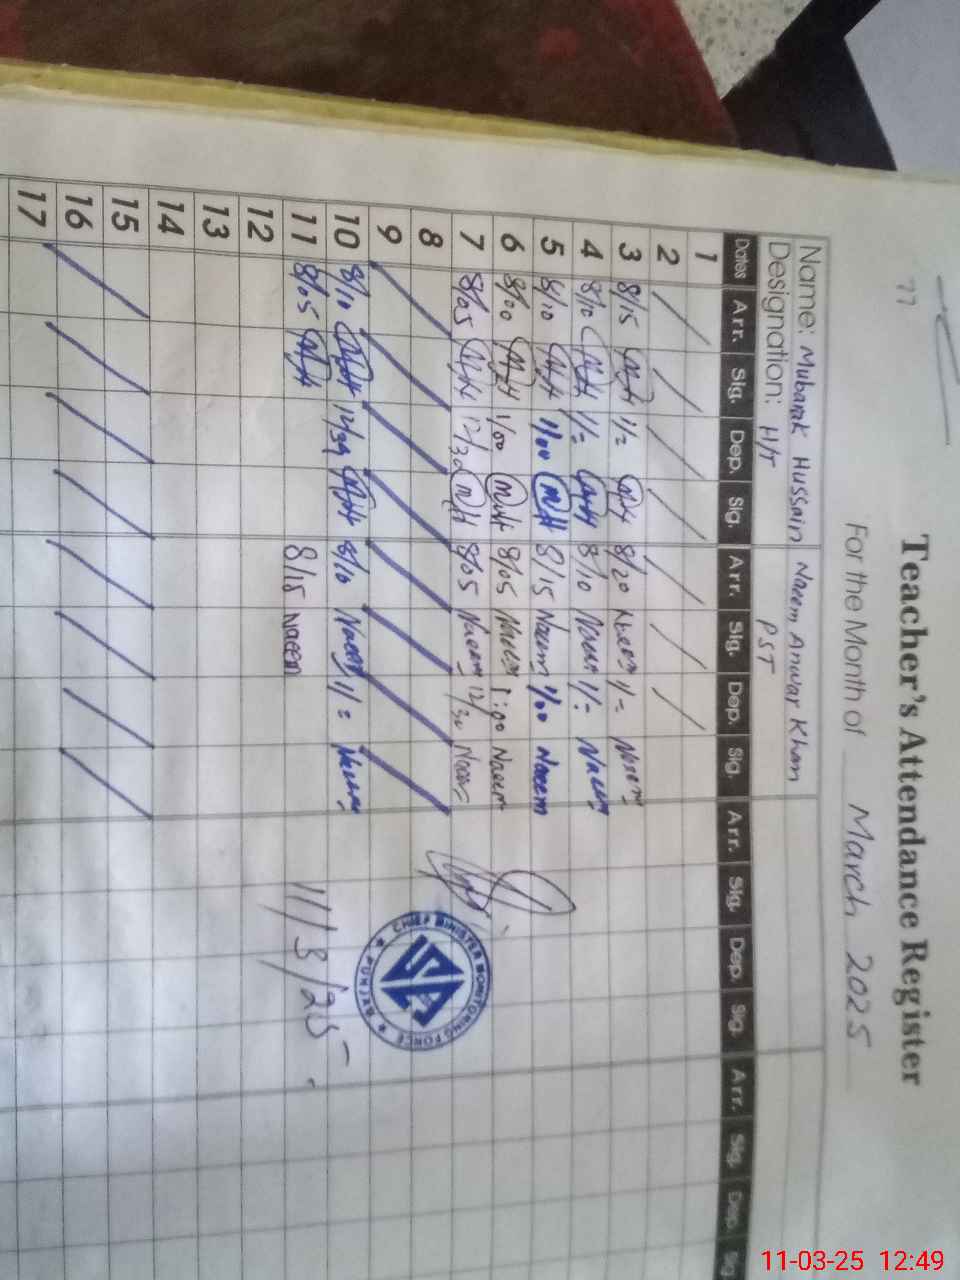 77
Teacher's Attendance Register
For the Month of March 2025
Name: Mubarak Hussain Naeem Anwar Khan
Designation: H/T PST
Dates Arr. Sig. Dep. Sig. Arr. Sig. Dep. Sig. Arr. Sig. Dep. Sig. Arr. Sig. Dep. Sig
1
2
3 8/15 MH 1/= MH 8/20 Naeem 1/= Naeem
4 8/10 MH 1/= MH 8/10 Naeem 1/= Naeem
5 8/10 MH 1/00 MH 8/15 Naeem 1/00 Naeem
6 8/00 MH 1/00 MH 8/05 Naeem 1:00 Naeem
7 8/05 MH 12/30 MH 8/05 Naeem 12/30 Naeem
8
9
10 8/10 MH MH 8/10 Naeem 1/= Naeem
11 8/05 MH 8/15 Naeem
12
13
14
15
16
17
CHIEF MINISTER MONITORING FORCE
PUNJAB
11/3/25
11-03-25 12:49